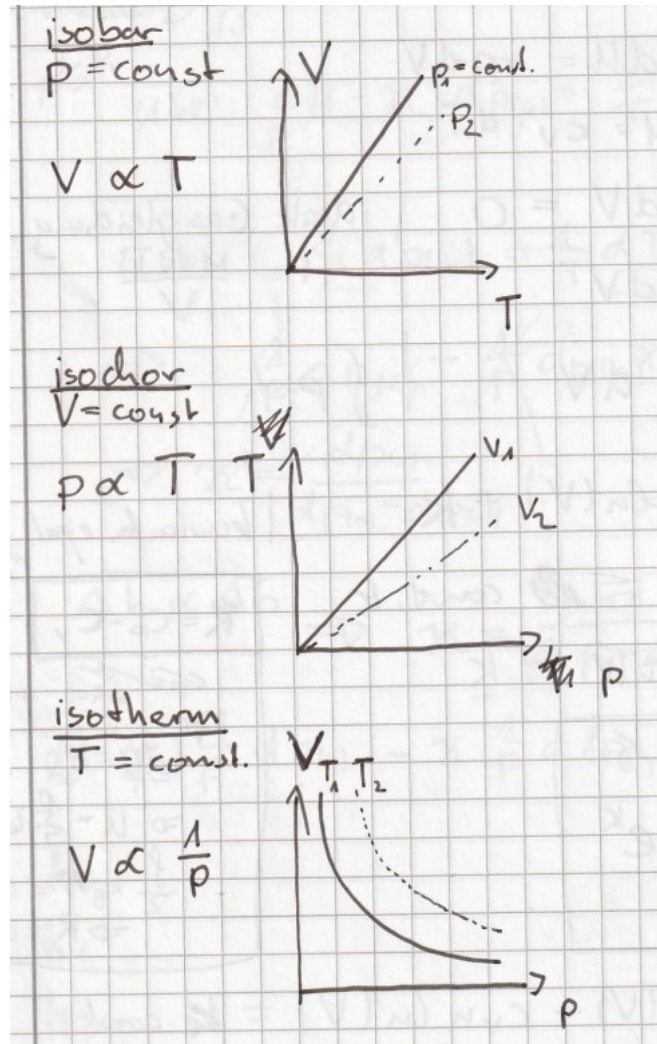 isobar
p = const
V
p₁ = const.
p₂
V ∝ T
T
isochor
V = const
p ∝ T
T
V₁
V₂
p
isotherm
T = const.
V
T₁ T₂
V ∝ 1/p
p